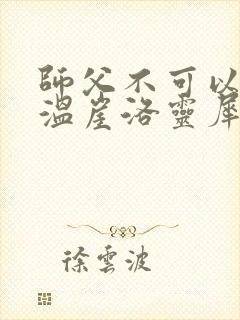 師父不可以
溫崖洛靈犀
徐雲波